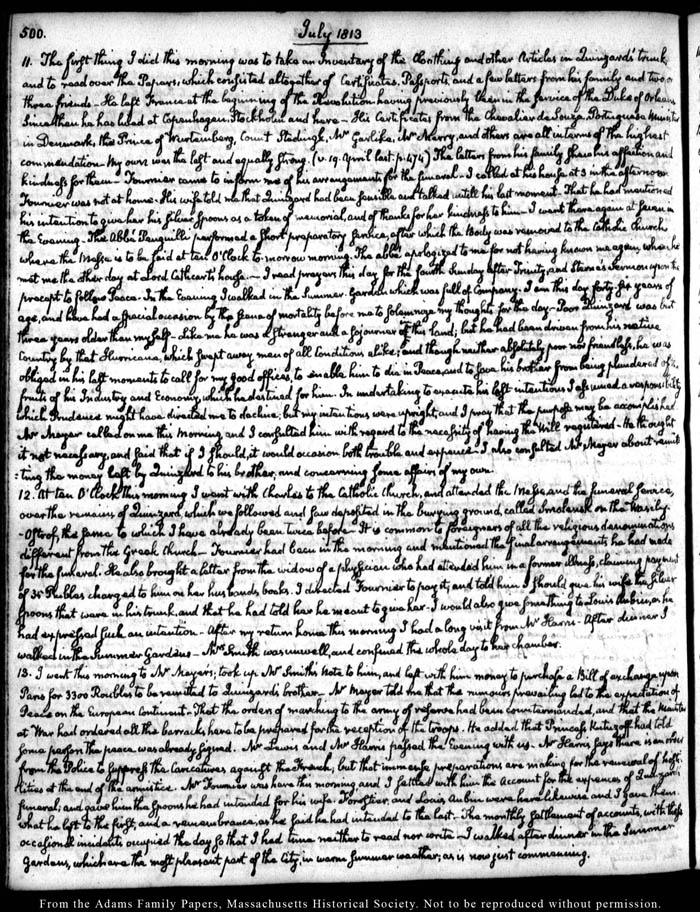 500.
July 1813
11. The first thing I did this morning was to take an Inventory of the Cloathing and other Articles in Quinzard's trunk,
and to read over the Papers, which consisted altogether of Certificates, Passports, and a few letters from his family and two or
three friends — He left France at the beginning of the Revolution having previously been in the service of the Duke of Orleans
Since then he has lived at Copenhagen, Stockholm and here — His Certificates from the Chevalier de Souza, Portuguese Minister
in Denmark, the Prince of Wurtemberg, Count Stedingk, Mr Garlike, Mr Merry, and others are all in terms of the highest
commendation — My own was the last and equally strong. (v. 19. April last. p. 474) The letters from his family shew his affection and
kindness for them — Fournier came to inform me of his arrangements for the funeral — I called at his house at 3 in the afternoon
Fournier was not at home. His wife told me that Quinzard had been sensible and talked untill his last moment. That he had mentioned
his intention to give her his Silver Spoons as a token of memorial, and of thanks for her kindness to him — I went there again at seven in
the Evening — The Abbé performed a short preparatory service, after which the Body was removed to the Catholic Church
where the Messe is to be said at ten O'Clock to-morrow morning. The abbé apologized to me for not having known me again, when he
met me the other day at Lord Cathcart's house — I read prayers this day for the fourth Sunday after Trinity, and Sterne's Sermon upon the
precept to follow Peace. In the Evening I walked in the Summer Garden which was full of Company. I am this day forty-six years of
age, and have had a special occasion by the scene of mortality before me to solemnize my thoughts for the day — Poor Quinzard was but
three years older than myself — Like me he was a Stranger and a Sojourner of this land; but he had been driven from his native
Country by that Hurricane, which swept away men of all Conditions alike; and though neither absolutely poor nor friendless, he was
obliged in his last moments to call for my good offices, to enable him to die in Peace, and to save his brother from being plundered of the
fruits of his Industry and Economy, which he destined for him. In undertaking to execute his last intentions I assumed a responsibility
which Prudence might have directed me to decline, but my intentions were upright, and I pray that the purpose may be accomplished
Mr Meyer called on me this Morning and I consulted him with regard to the necessity of having the Will registered. He thought
it not necessary, and said that if I should, it would occasion both trouble and expence. I also consulted Mr Meyer about remit
:ting the money left by Quinzard to his brother, and concerning some affairs of my own.
12. At ten O'Clock this morning I went with Charles to the Catholic Church, and attended the Messe and the funeral service,
over the remains of Quinzard, which we followed and saw deposited in the burying ground, called Smolensk on the Wasily-
-Ostrof, the same to which I have already been twice before — It is common to foreigners of all the religious denominations
different from the Greek Church — Fournier had been in the morning and mentioned the final arrangements he had made
for the funeral. He also brought a letter from the widow of a physician who had attended him in a former illness, claiming payment
of 35 Roubles charged to him on her husband's books. I directed Fournier to pay it; and told him I should give his wife the Silver
Spoons that were in his trunk, and that he had told her he meant to give her — I would also give something to Louis Aubin, as he
had expressed such an intention — After my return home this morning I had a long visit from Mr Harris — After dinner I
walked in the Summer Gardens — Mrs Smith was unwell, and confined the whole day to her chamber.
13. I went this morning to Mr Meyer's; took up Mr Smith's Note to him, and left with him money to purchase a Bill of exchange upon
Paris for 3300 Roubles to be remitted to Quinzard's brother — Mr Meyer told me that the rumours prevailing led to the expectation of
Peace on the European Continent — That the orders of marching to the army of reserve had been countermanded, and that the Minister
at War had ordered all the barracks here to be prepared for the reception of the troops. He added that Princess Kutuzoff had told
some person the peace was already signed. Mr Lewis and Mr Harris passed the Evening with us. Mr Harris says there is an order
from the Police to suppress the Caricatures against the French, but that immense preparations are making for the renewal of hosti-
:lities at the end of the armistice. Mr Fournier was here this morning and I settled with him the Account for the expences of Quinzard's
funeral; and gave him the Spoons he had intended for his wife. Forestier, and Louis Aubin were here likewise and I gave them
what he left to the first, and a remembrance, as he said he had intended to the last. The monthly settlement of accounts, with these
occasional incidents occupied the day so that I had time neither to read nor write — I walked after dinner in the Summer
Gardens, which are the most pleasant part of the City, in warm Summer weather; as is now just commencing.
From the Adams Family Papers, Massachusetts Historical Society. Not to be reproduced without permission.